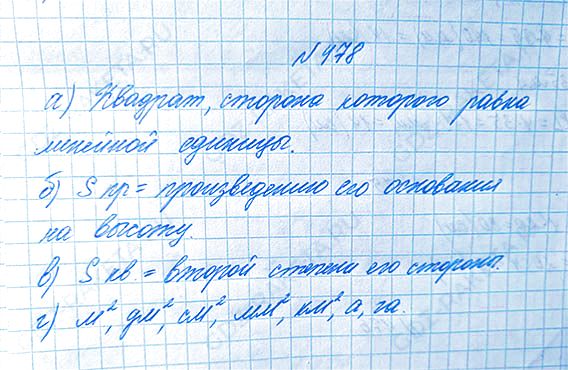 № 478
а) Квадрат, сторона которого равна
линейной единицы.
б) S пр = произведению его основания
на высоту.
в) S кв = второй степени его стороны.
г) м², дм², см², мм², км², а, га.